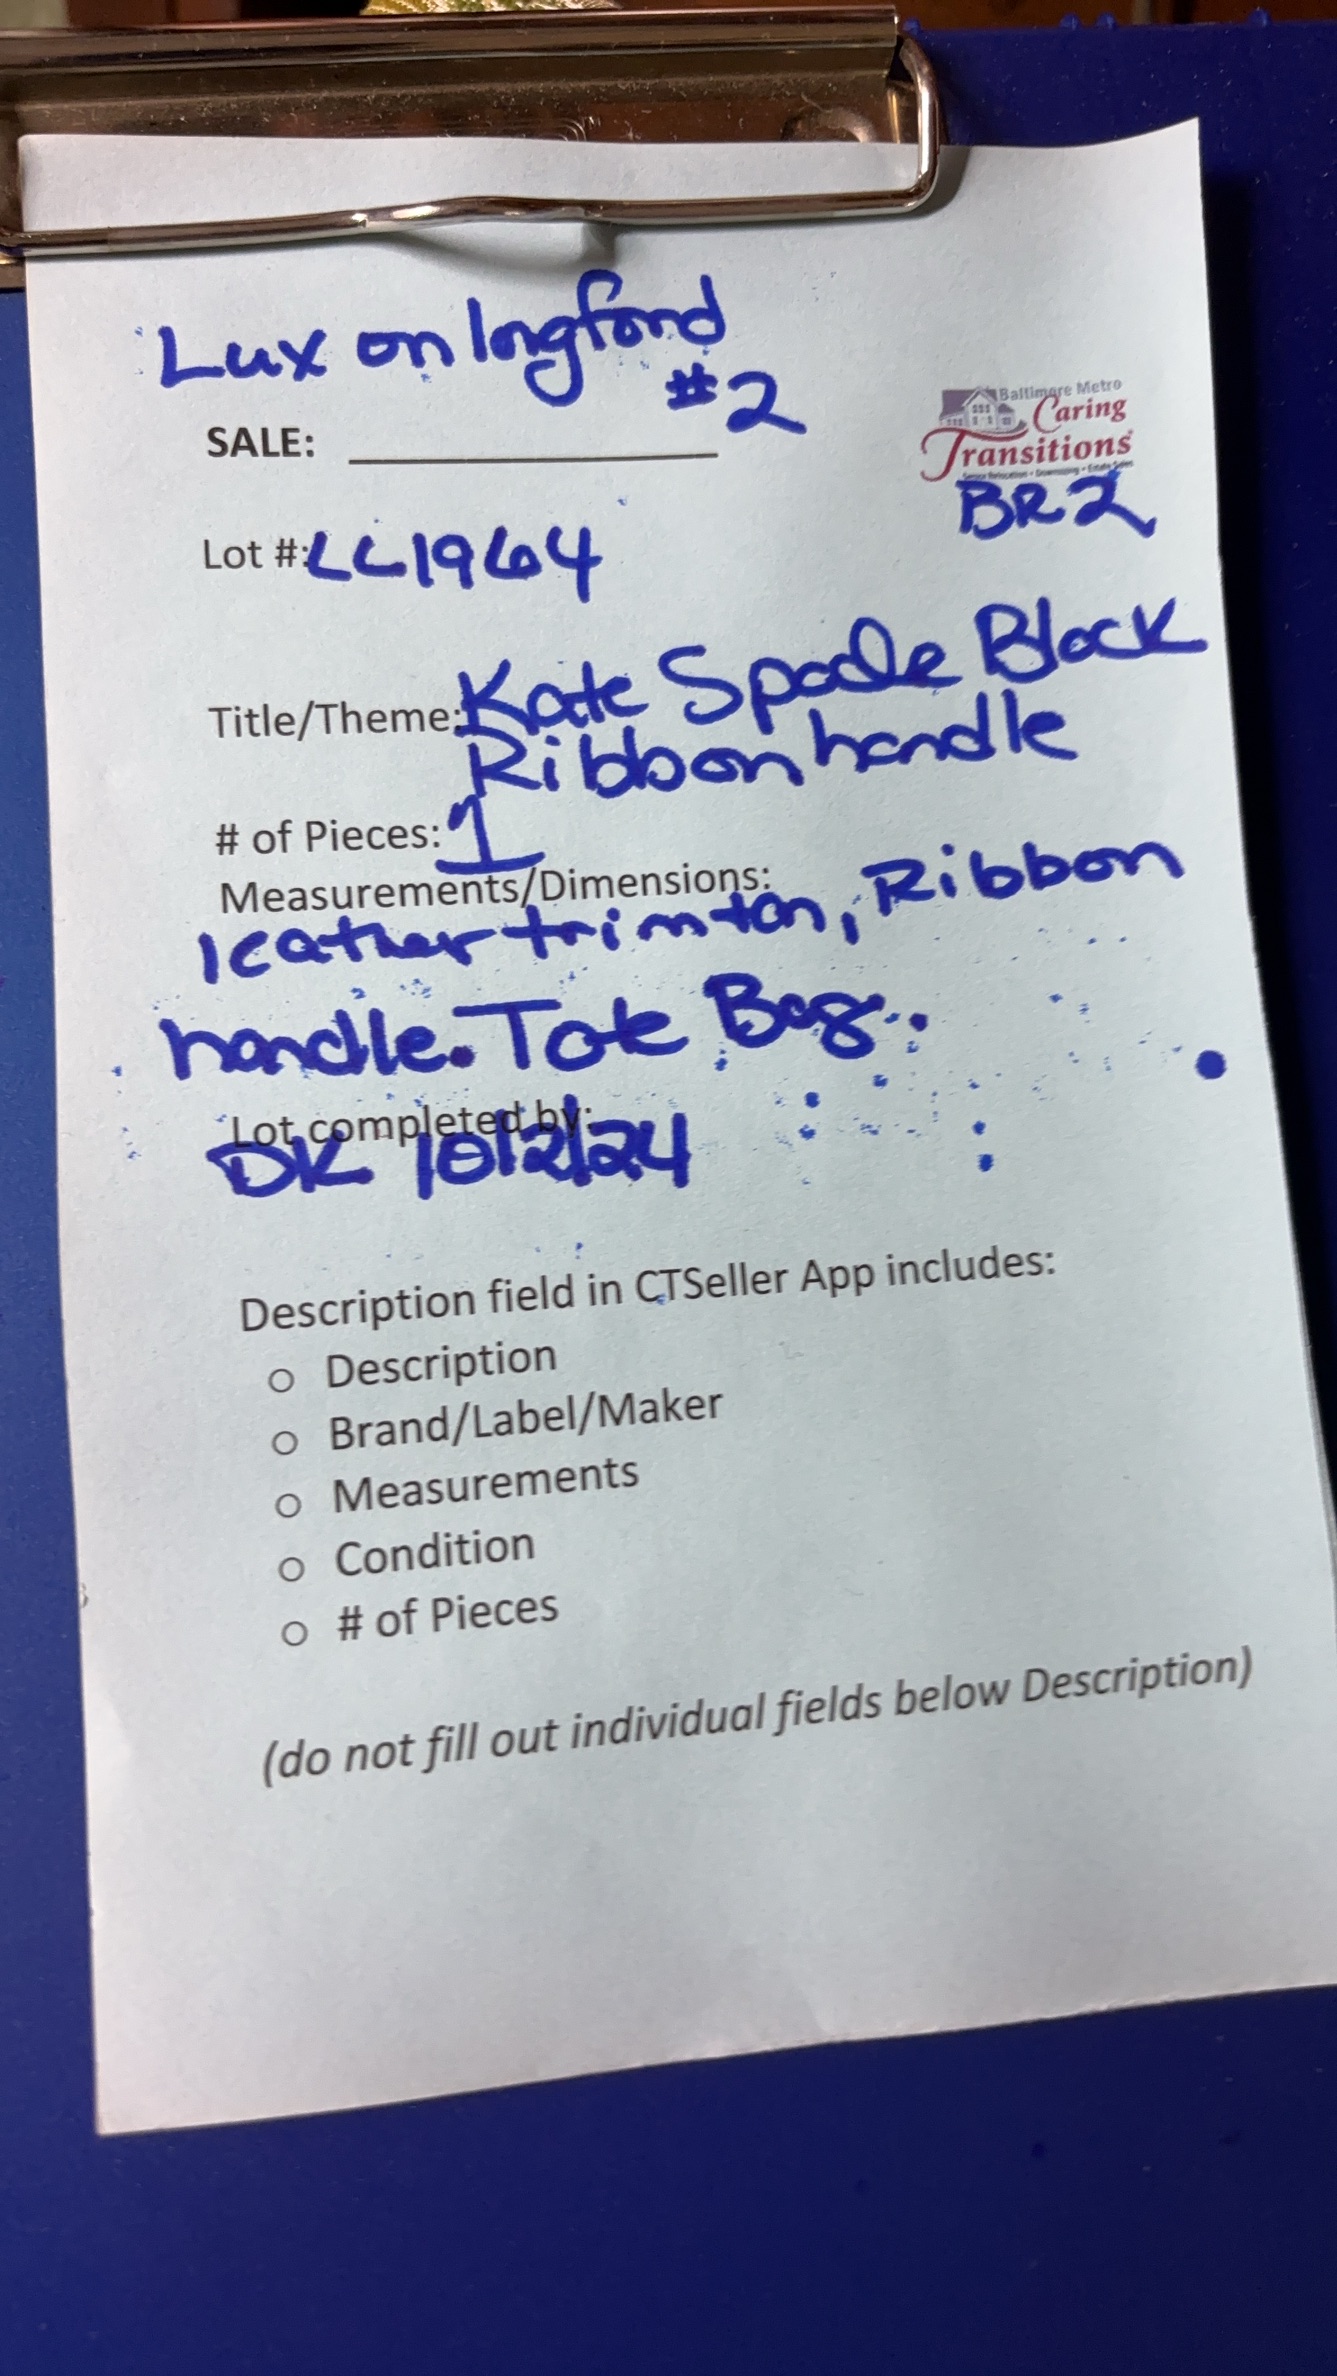 Lux on longford
#2
SALE:
Baltimore Metro
Caring
Transitions
BR2
Lot #: LL1964
Title/Theme: Kate Spade Black
Ribbon handle
# of Pieces: 1
Measurements/Dimensions:
leather trim tan, Ribbon
handle. Tote Bag.
Lot completed by:
DK 10/2/24
Description field in CTSeller App includes:
o Description
o Brand/Label/Maker
o Measurements
o Condition
o # of Pieces
(do not fill out individual fields below Description)